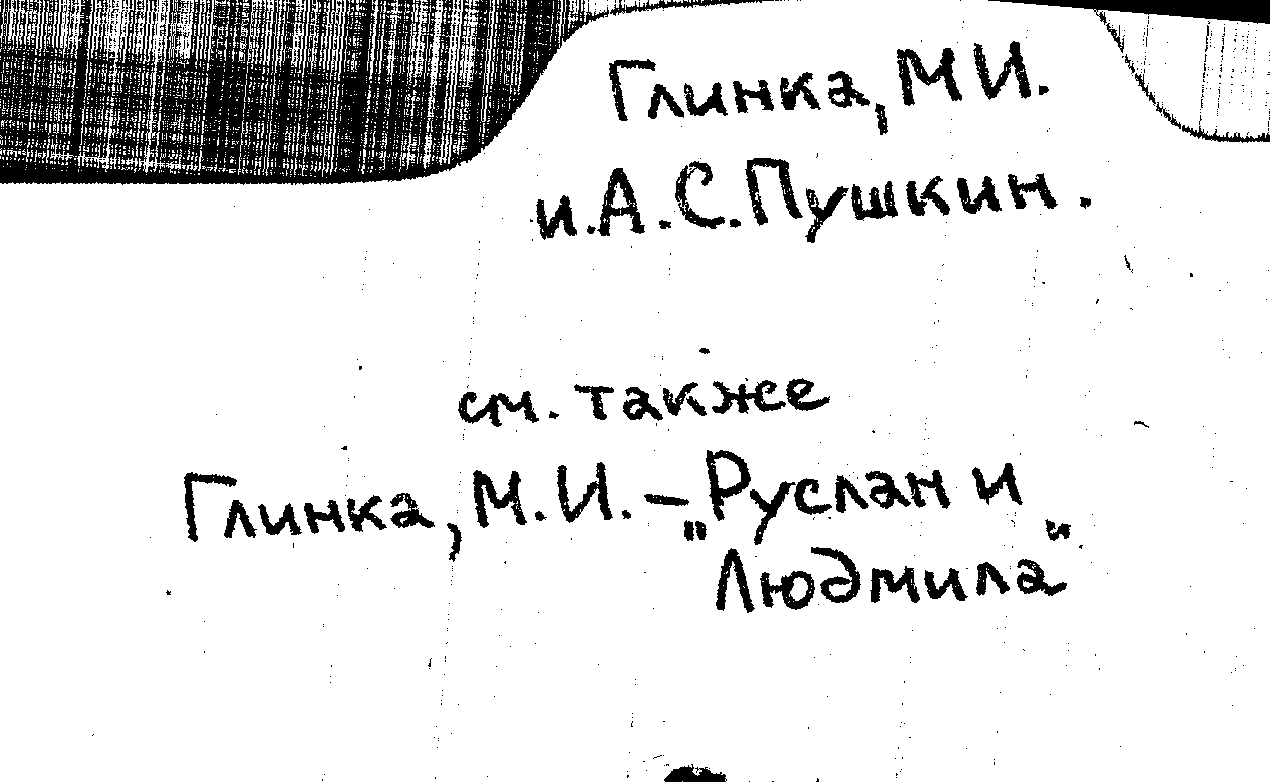 Глинка, М И.
и. А. С. Пушкин.
см. также
Глинка, М. И. – "Руслан и
Людмила"